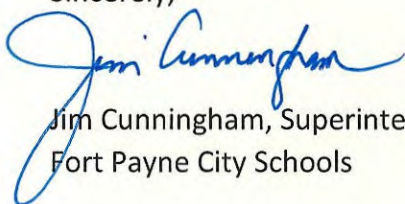 Sincerely,
Jim Cunningham
Jim Cunningham, Superinte
Fort Payne City Schools